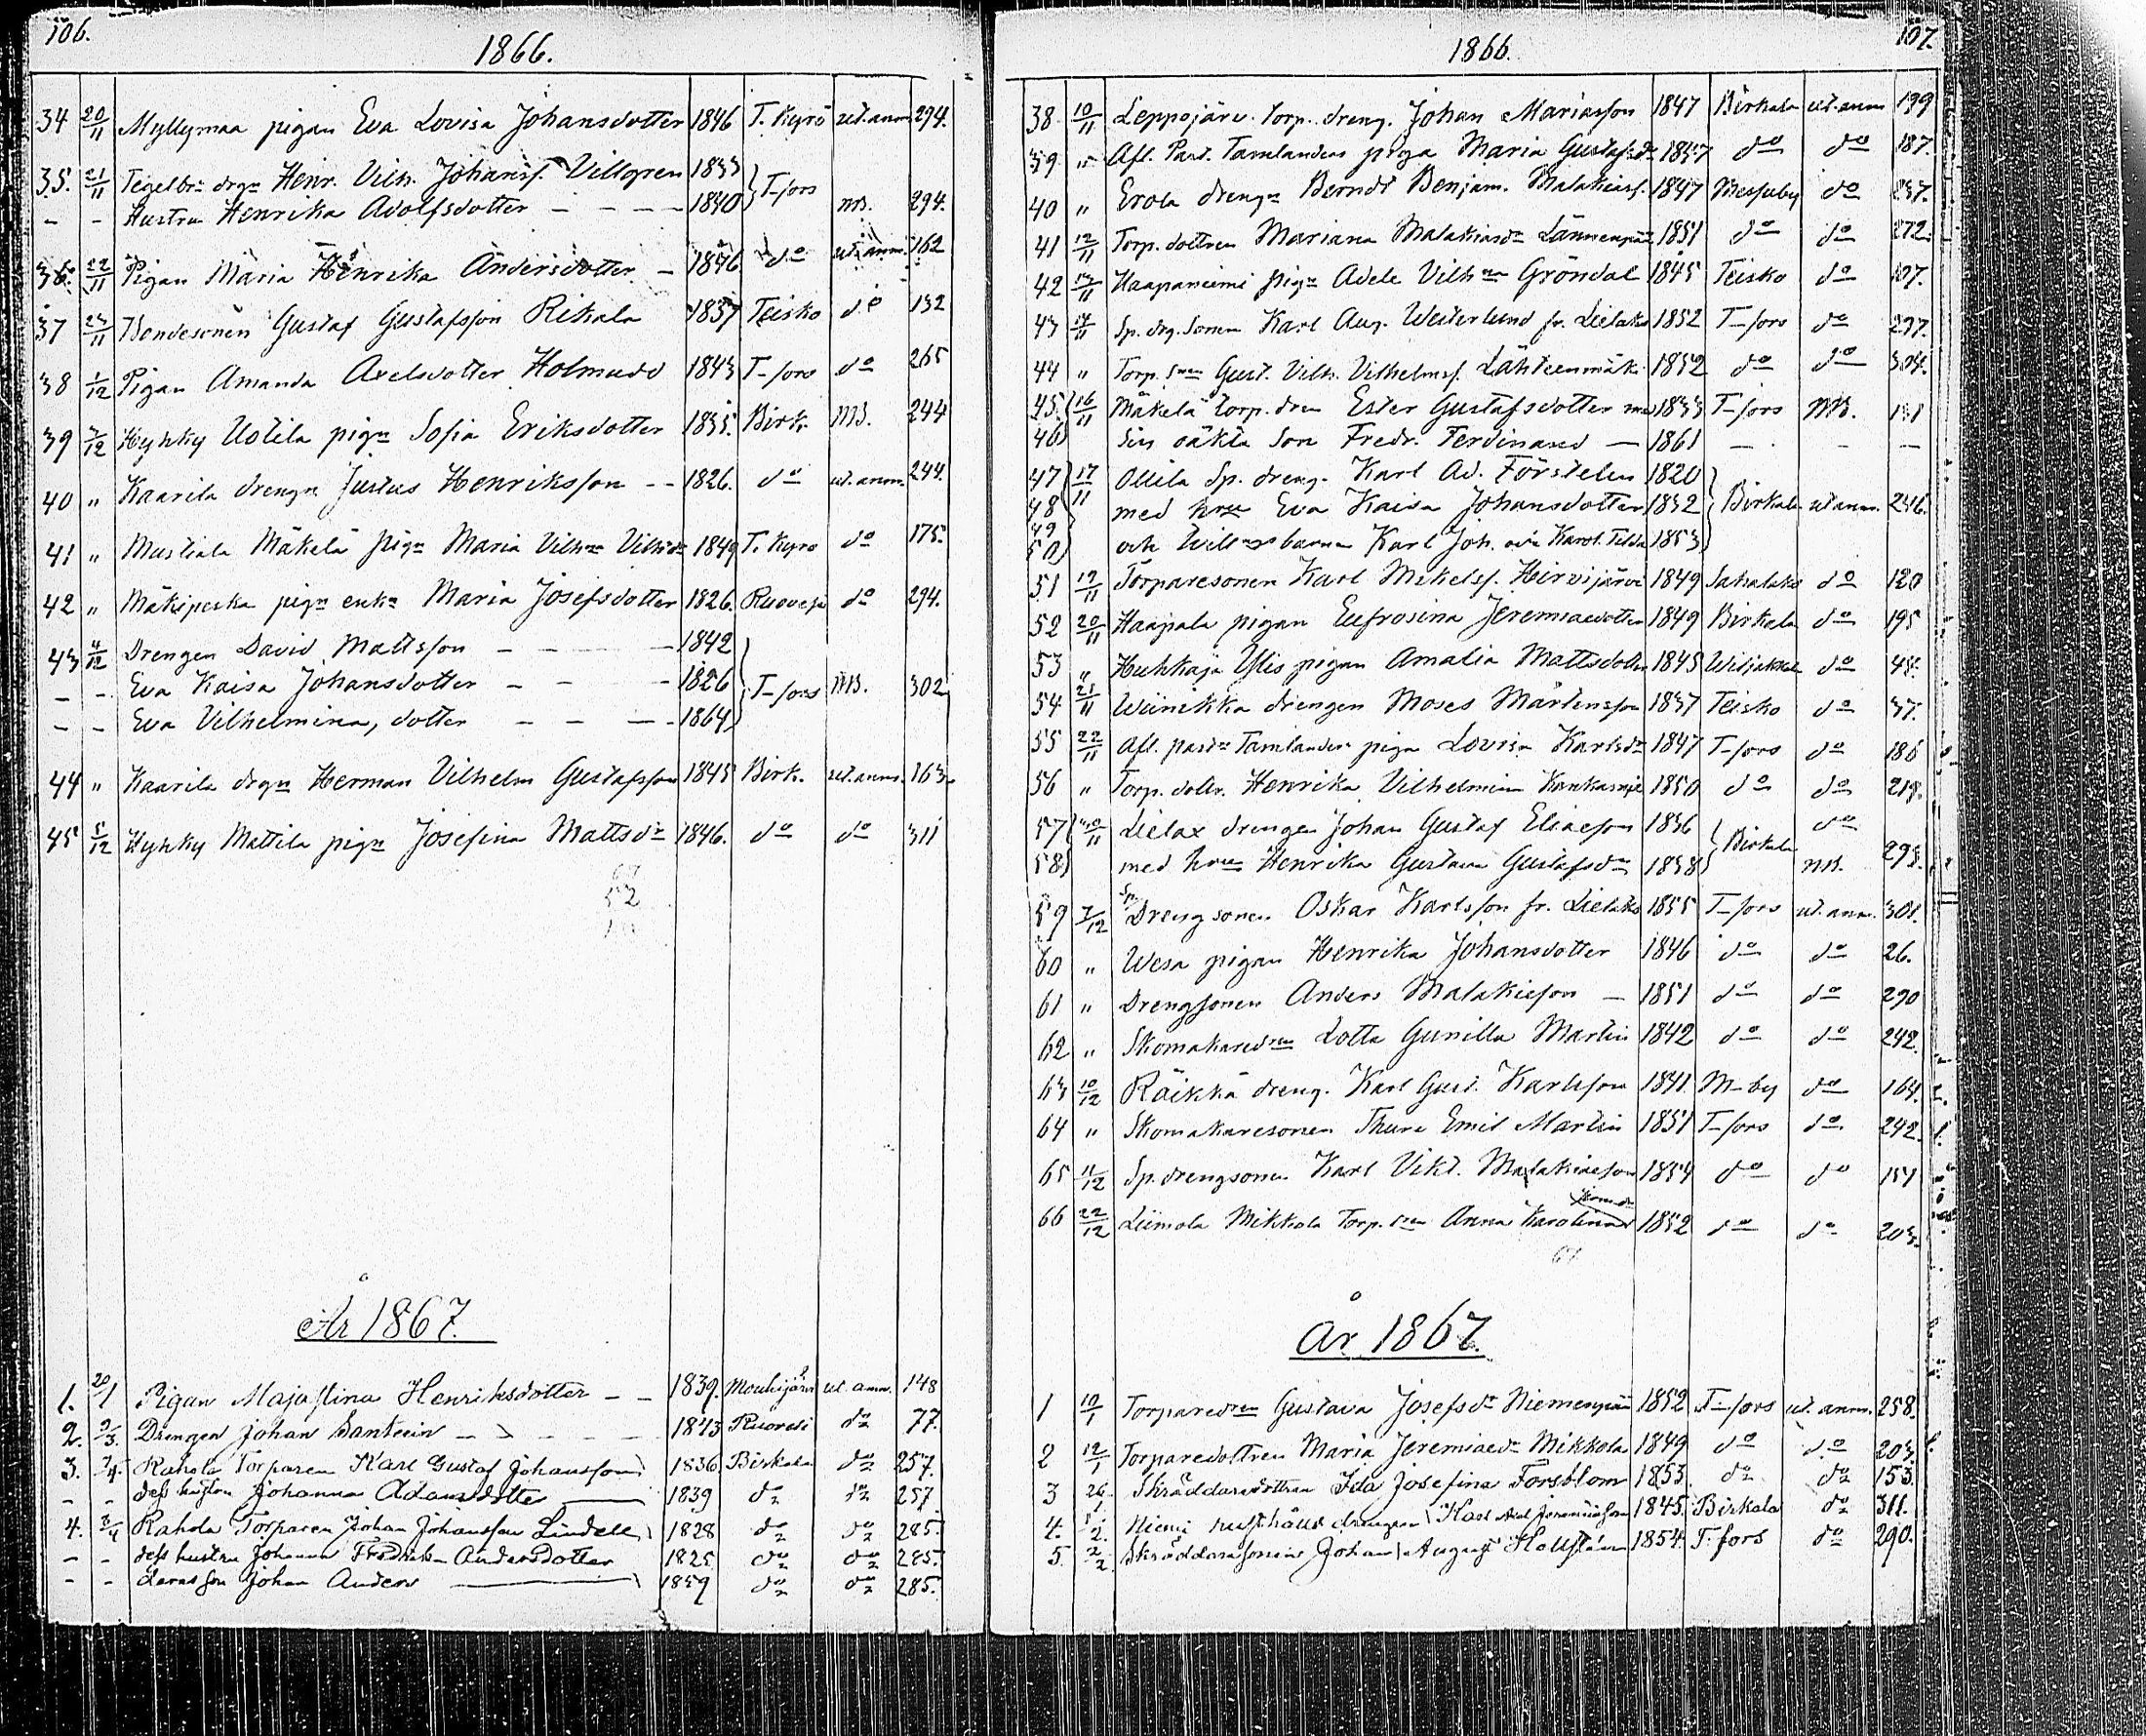 106.
1866.
34 20/11 Myllymaa pigan Eva Lovisa Johansdotter 1846 T. Kyrö ut. anm. 294.
35. 21/11 Tegelbr. drgn Henr. Vilh. Johanss. Villgren 1833 T-fors
- - Hustru Henrika Adolfsdotter - - - 1840 ms. 294.
36. 22/11 Pigan Maria Henrika Andersdotter - 1846 do ut. anm. 162
37 23/11 Bondesonen Gustaf Gustafsson Rikala 1837 Teisko do 132
38 1/12 Pigan Amanda Axelsdotter Holmudd 1843 T-fors do 265
39 3/12 Hyhky Uotila pign Sofia Eriksdotter 1835. Birk. MS. 244
40 " Kaarila drengn Justus Henriksson - - 1826. do ut. anm. 244.
41 " Mustiala Mäkelä pign Maria Vilhna Vilhdr 1849 T. Kyro do 175.
42 " Mäkipeska pign enkn Maria Josefsdotter 1826. Ruovesi do 294.
43 4/12 Drengen David Mattsson - - - 1842
- - Eva Kaisa Johansdotter - - - 1826 T-fors MS. 302
- - Eva Vilhelmina, dotter - - - 1864
44 " Kaarila drgn Herman Vilhelm Gustafsson 1845 Birk. ut. anm. 163.
45 5/12 Hyhky Mattila pign Josefina Mattsdr 1846. do do 311
52
År 1867.
1. 20/1 Pigan Majastina Henriksdotter - - 1839. Mouhijärvi ut. anm. 148
2. 9/3. Drengen Johan Santtein - - - 1843 Ruovesi do 77.
3. 7/4. Rahola Torparen Karl Gustaf Johansson 1836 Birkala do 257.
- - dess hustru Johanna Adamsdotter 1839 do do 257
4. 8/4 Rahola Torparen Johan Johansson Lindell 1828 do do 285.
- - dess hustru Johanna Fredrik. Andersdotter 1825 do do 285.
- - deras son Johan Anders 1859 do do 285.
107.
1866.
38 10/11 Leppojärv. torp. dreng. Johan Mariasson 1847 Birkala ut. anm 199
39 " Afl. Past. Tamlanders piga Maria Gustafsdr 1837 do do 187.
40 " Erola drengn Berndt Benjam. Malakiass. 1847 Messuby do 237.
41 12/11 Torp. dottren Mariana Malakiasdr Lännenpää 1851 do do 272.
42 13/11 Haapaniemi pign Adele Vilhna Gröndal 1845 Teisko do 127.
43 14/11 Sp. drg. sonen Karl Aug. Westerlund fr. Lielaks 1852 T-fors do 297.
44 " Torp. snen Gust. Vilh. Vilhelmss. Lähteenmäk. 1852 do do 304.
45 16/11 Mäkelä torp. dren Ester Gustafsdotter med 1833 T-fors MS. 131
46 sin oäkta son Fredr. Ferdinand - 1861 - - -
47 17/11 Ollila Sp. dreng. Karl Ad. Förstelin 1820
48 med hru Eva Kaisa Johansdotter 1832 Birkala ut anm. 246.
49
50 och barnen Karl Joh. och Karol. Tilda 1853
51 19/11 Torparesonen Karl Mikelss. Hirvijärvi 1849 Sahalaks do 120
52 20/11 Haapala pigan Eufrosina Jeremiaedotter 1849 Birkala do 195
53 " Huhkaja Ylis pigan Amalia Mattsdotter 1845 Wiljakkal do 45.
54 21/11 Wiinikka drengen Moses Mårtensson 1837 Teisko do 37.
55 22/11 Afl. pastn Tamlander piga Lovisa Karlsdr 1847 T-fors do 186
56 " Torp. dottr. Henrika Vilhelmina 1850 do do 219.
57 30/11 Lielax drengen Johan Gustaf Eliasson 1836 Birkala do
58 med hru Henrika Gustava Gustafsdr 1838 ms. 293.
59 7/12 Sp. Drengsonen Oskar Karlsson fr. Lielaks 1855 T-fors ut. anm. 301.
60 " Wesa pigan Henrika Johansdotter 1846 do do 26.
61 " Drengsonen Anders Malakiesson - 1851 do do 290
62 " Skomakaredren Lotta Gunilla Martin 1842 do do 242.
63 10/12 Räikkä dreng. Karl Gust. Karlsson 1841. M-by do 164.
64 " Skomakaresonen Thure Emil Martin 1851 T-fors do 242.
65 11/12 Sp. drengsonen Karl Vikt. Malakiaesson 1854 do do 151
66 22/12 Liimola Mikkola Torp. dren Anna Karolina 1852 do do 203.
67
År 1867.
1 10/1 Torparedren Gustava Josefsdr Niemenpää 1852 T-fors ut. anm. 258.
2 12/1 Torparedottren Maria Jeremiaedr Mikkola 1849 do do 203.
3 26/1. Skräddaredottren Ida Josefina Forsblom 1853. do do 153.
4. 1/2. Niemi rusthålls drengen Karl Axel Jeremiasson 1845. Birkala do 311.
5. 2/2 Skräddaresonen Johan August Hollsten 1854. T. fors do 290.